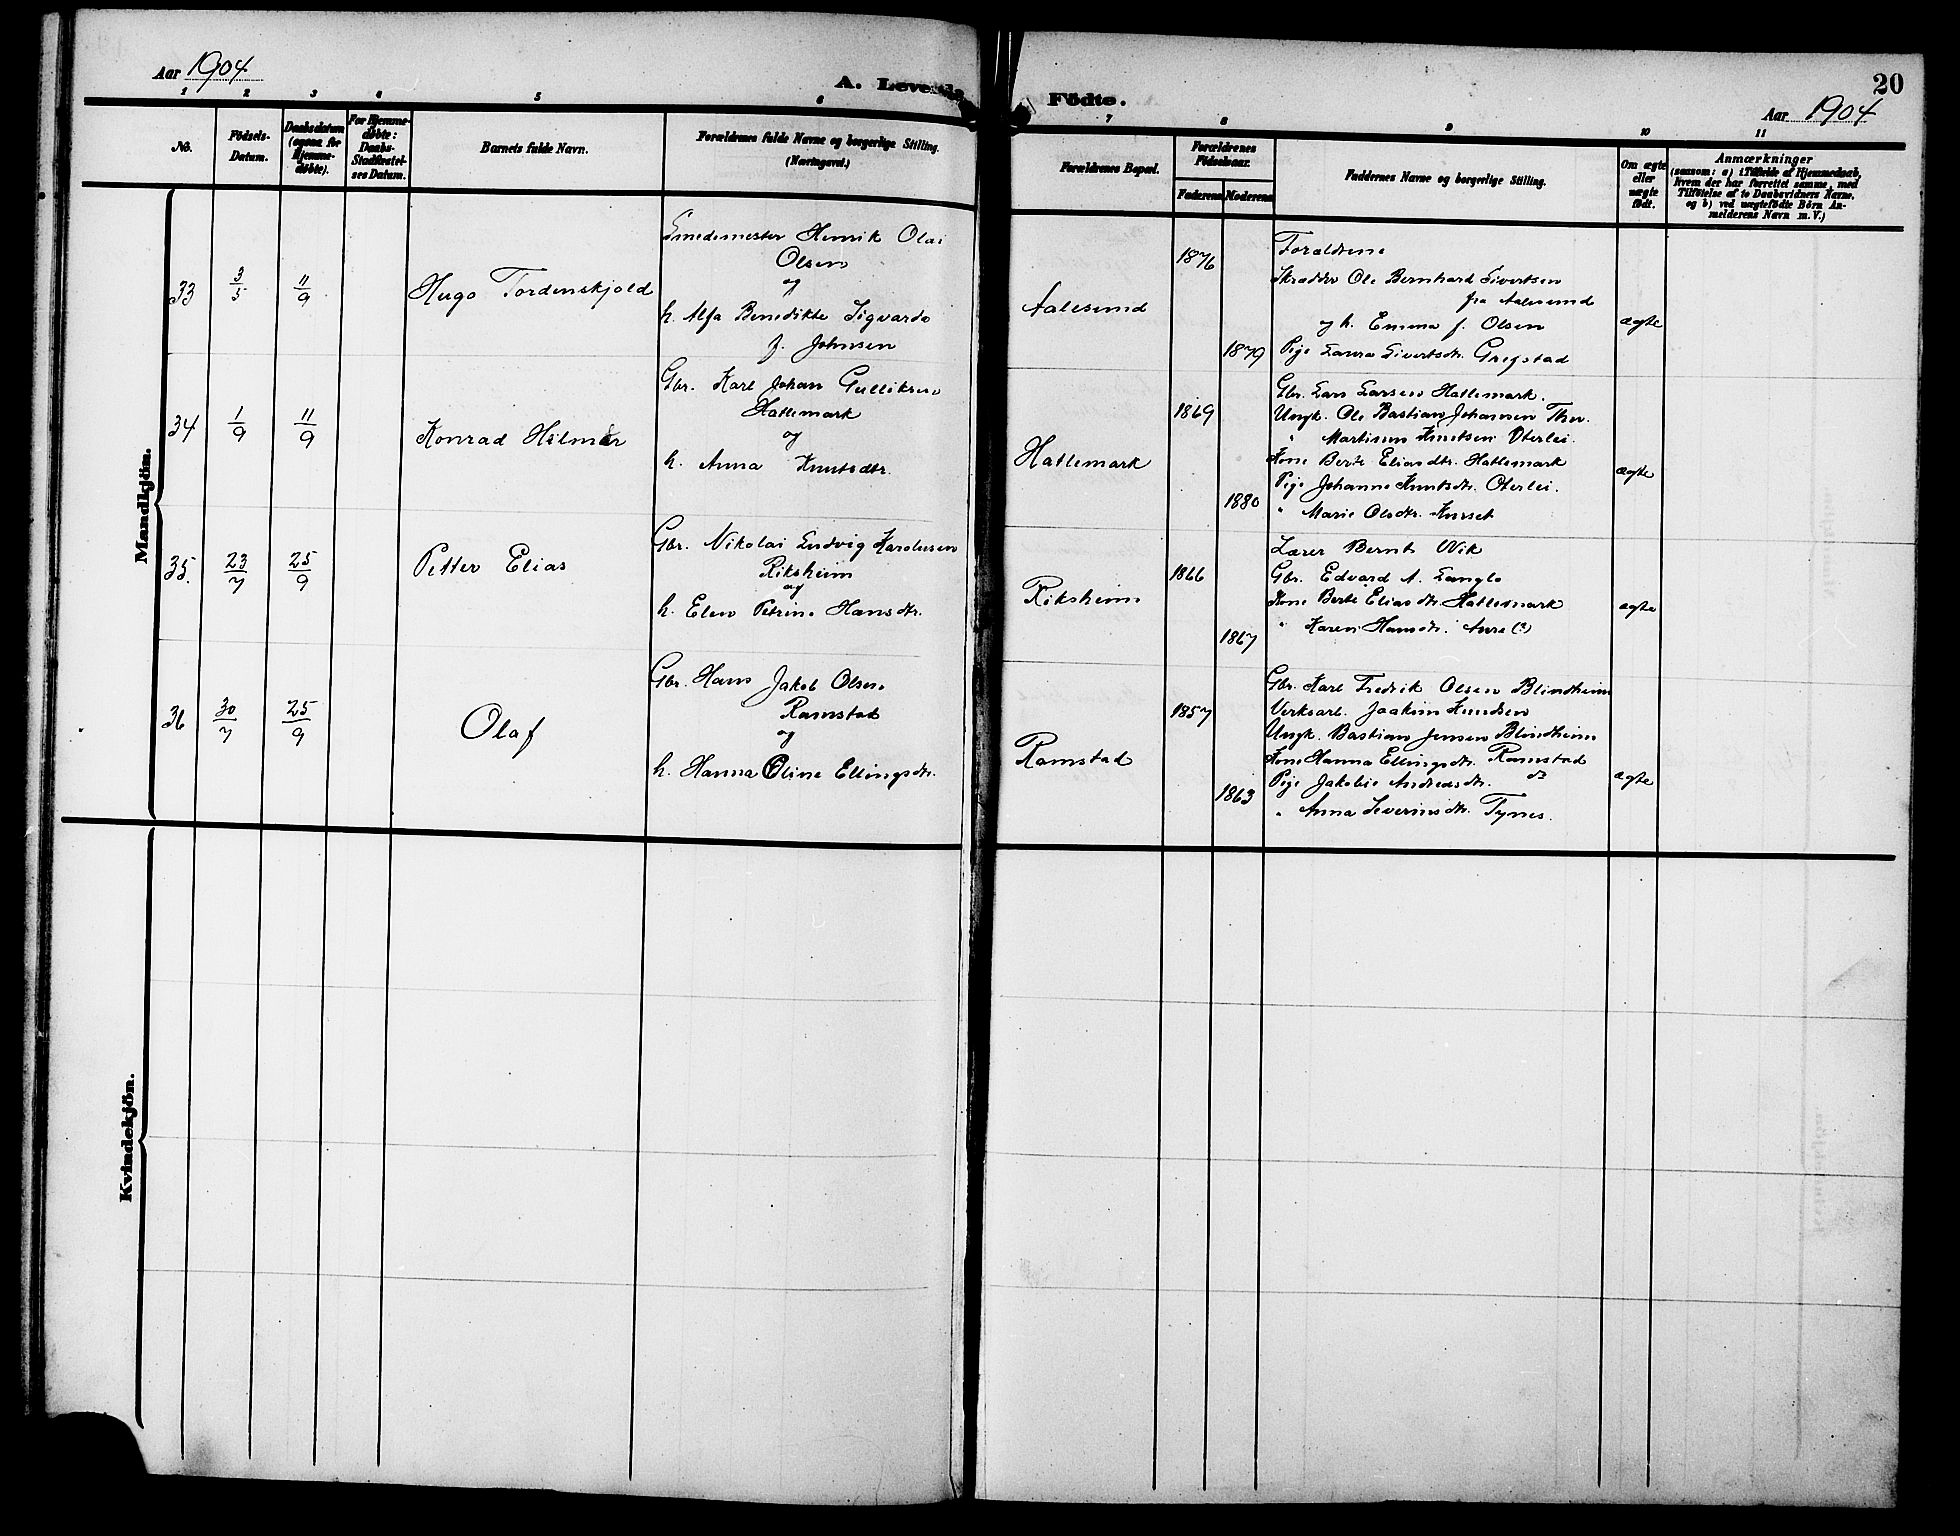 Aar 1904
A. Levende
Födte.
20
Aar 1904
1 2 3 4 5 6
7 8 9 10 11
No.
Födsels-
Datum.
Daabsdatum
(ogsaa for
Hjemme-
døbte).
For Hjemme-
døbte:
Daabs-
Stadfæstel-
ses Datum.
Barnets fulde Navn.
Forældrenes fulde Navne og borgerlige Stilling.
(Næringsvei.)
Forældrenes Bopæl.
Forældrenes
Födselsaar.
Faderens Moderens
Faddernes Navne og borgerlige Stilling.
Om ægte
eller
uægte
født.
Anmærkninger
(saasom: a) i Tilfælde af Hjemmedaab,
hvem der har forrettet samme, med
Tilföielse af to Daabsvidners Navne,
og b) ved uægtefödte Börn An-
melderens Navn m. V.)
Mandkjön.
33
3/5
11/9
Hugo Tordenskjold
Smedemester Henrik Olai
Olsen
og
h. Alfa Benedikte Sigvarda
f. Johnsen
Aalesund
1876
1879
Forældrene
Skrædder Ole Bernhard Sivertsen
fra Aalesund
og h. Emma f. Olsen
Pige Laura Sivertsdtr. Gregstad
ægte
34
1/9
11/9
Konrad Hilmar
Gbr. Karl Johan Gulliksen
Hatlemark
og
h. Anna Knutsdtr.
Hatlemark
1869
1880
Gbr. Lars Larsen Hatlemark.
Ungk. Ole Bastian Johansen
" Martinus Knutsen Oterlei.
Kone Berte Eliasdtr. Hatlemark
Pige Johanne Knutsdtr. Oterlei.
" Marie Olsdtr. Kurset
ægte
35.
23/7
25/9
Petter Elias
Gbr. Nikolai Ludvig Karolusen
Riksheim
og
h. Elen Petrine Hansdtr.
Riksheim
1866
1867
Lærer Bernt Vik
Gbr. Edvard A. Langlo
Kone Berte Eliasdtr. Hatlemark
" Karen Hansdtr. Aure (?)
ægte
36
30/7
25/9
Olaf
Gbr. Hans Jakob Olsen
Ramstad
og
h. Hanna Oline Ellingsdtr.
Ramstad
1857
1863
Gbr. Karl Fredrik Olsen Blindheim
Verksarb. Joakim Knudsen
Ungk. Bastian Jensen Blindheim
Kone Hanna Ellingsdtr. Ramstad
Pige Jakobie Andreasdtr. do
" Anna Severinsdtr. Tynes.
ægte
Kvindekjön.